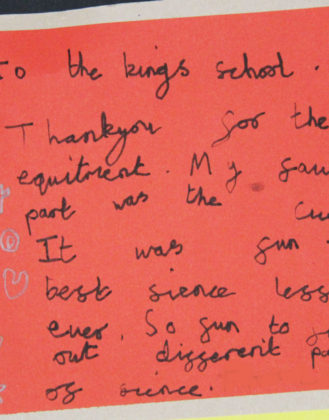 To the kings school.
Thankyou for the
equitment. My
part was the
It was fun
best sience less
ever. So fun to
out different
of sience.